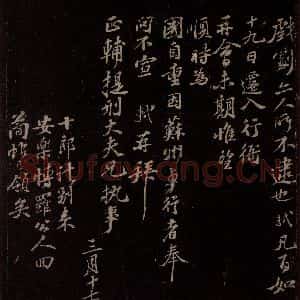 戲劇亦人所不逮也軾凡百如
十九日遷入行衙
再會未期惟望
順時為
國自重因蘇州卓行者奉
問不宣 軾再拜
正輔提刑大夫兄執事
三月十
十郎侍別來
安樂博羅
簡領矣
Shufawang.CN